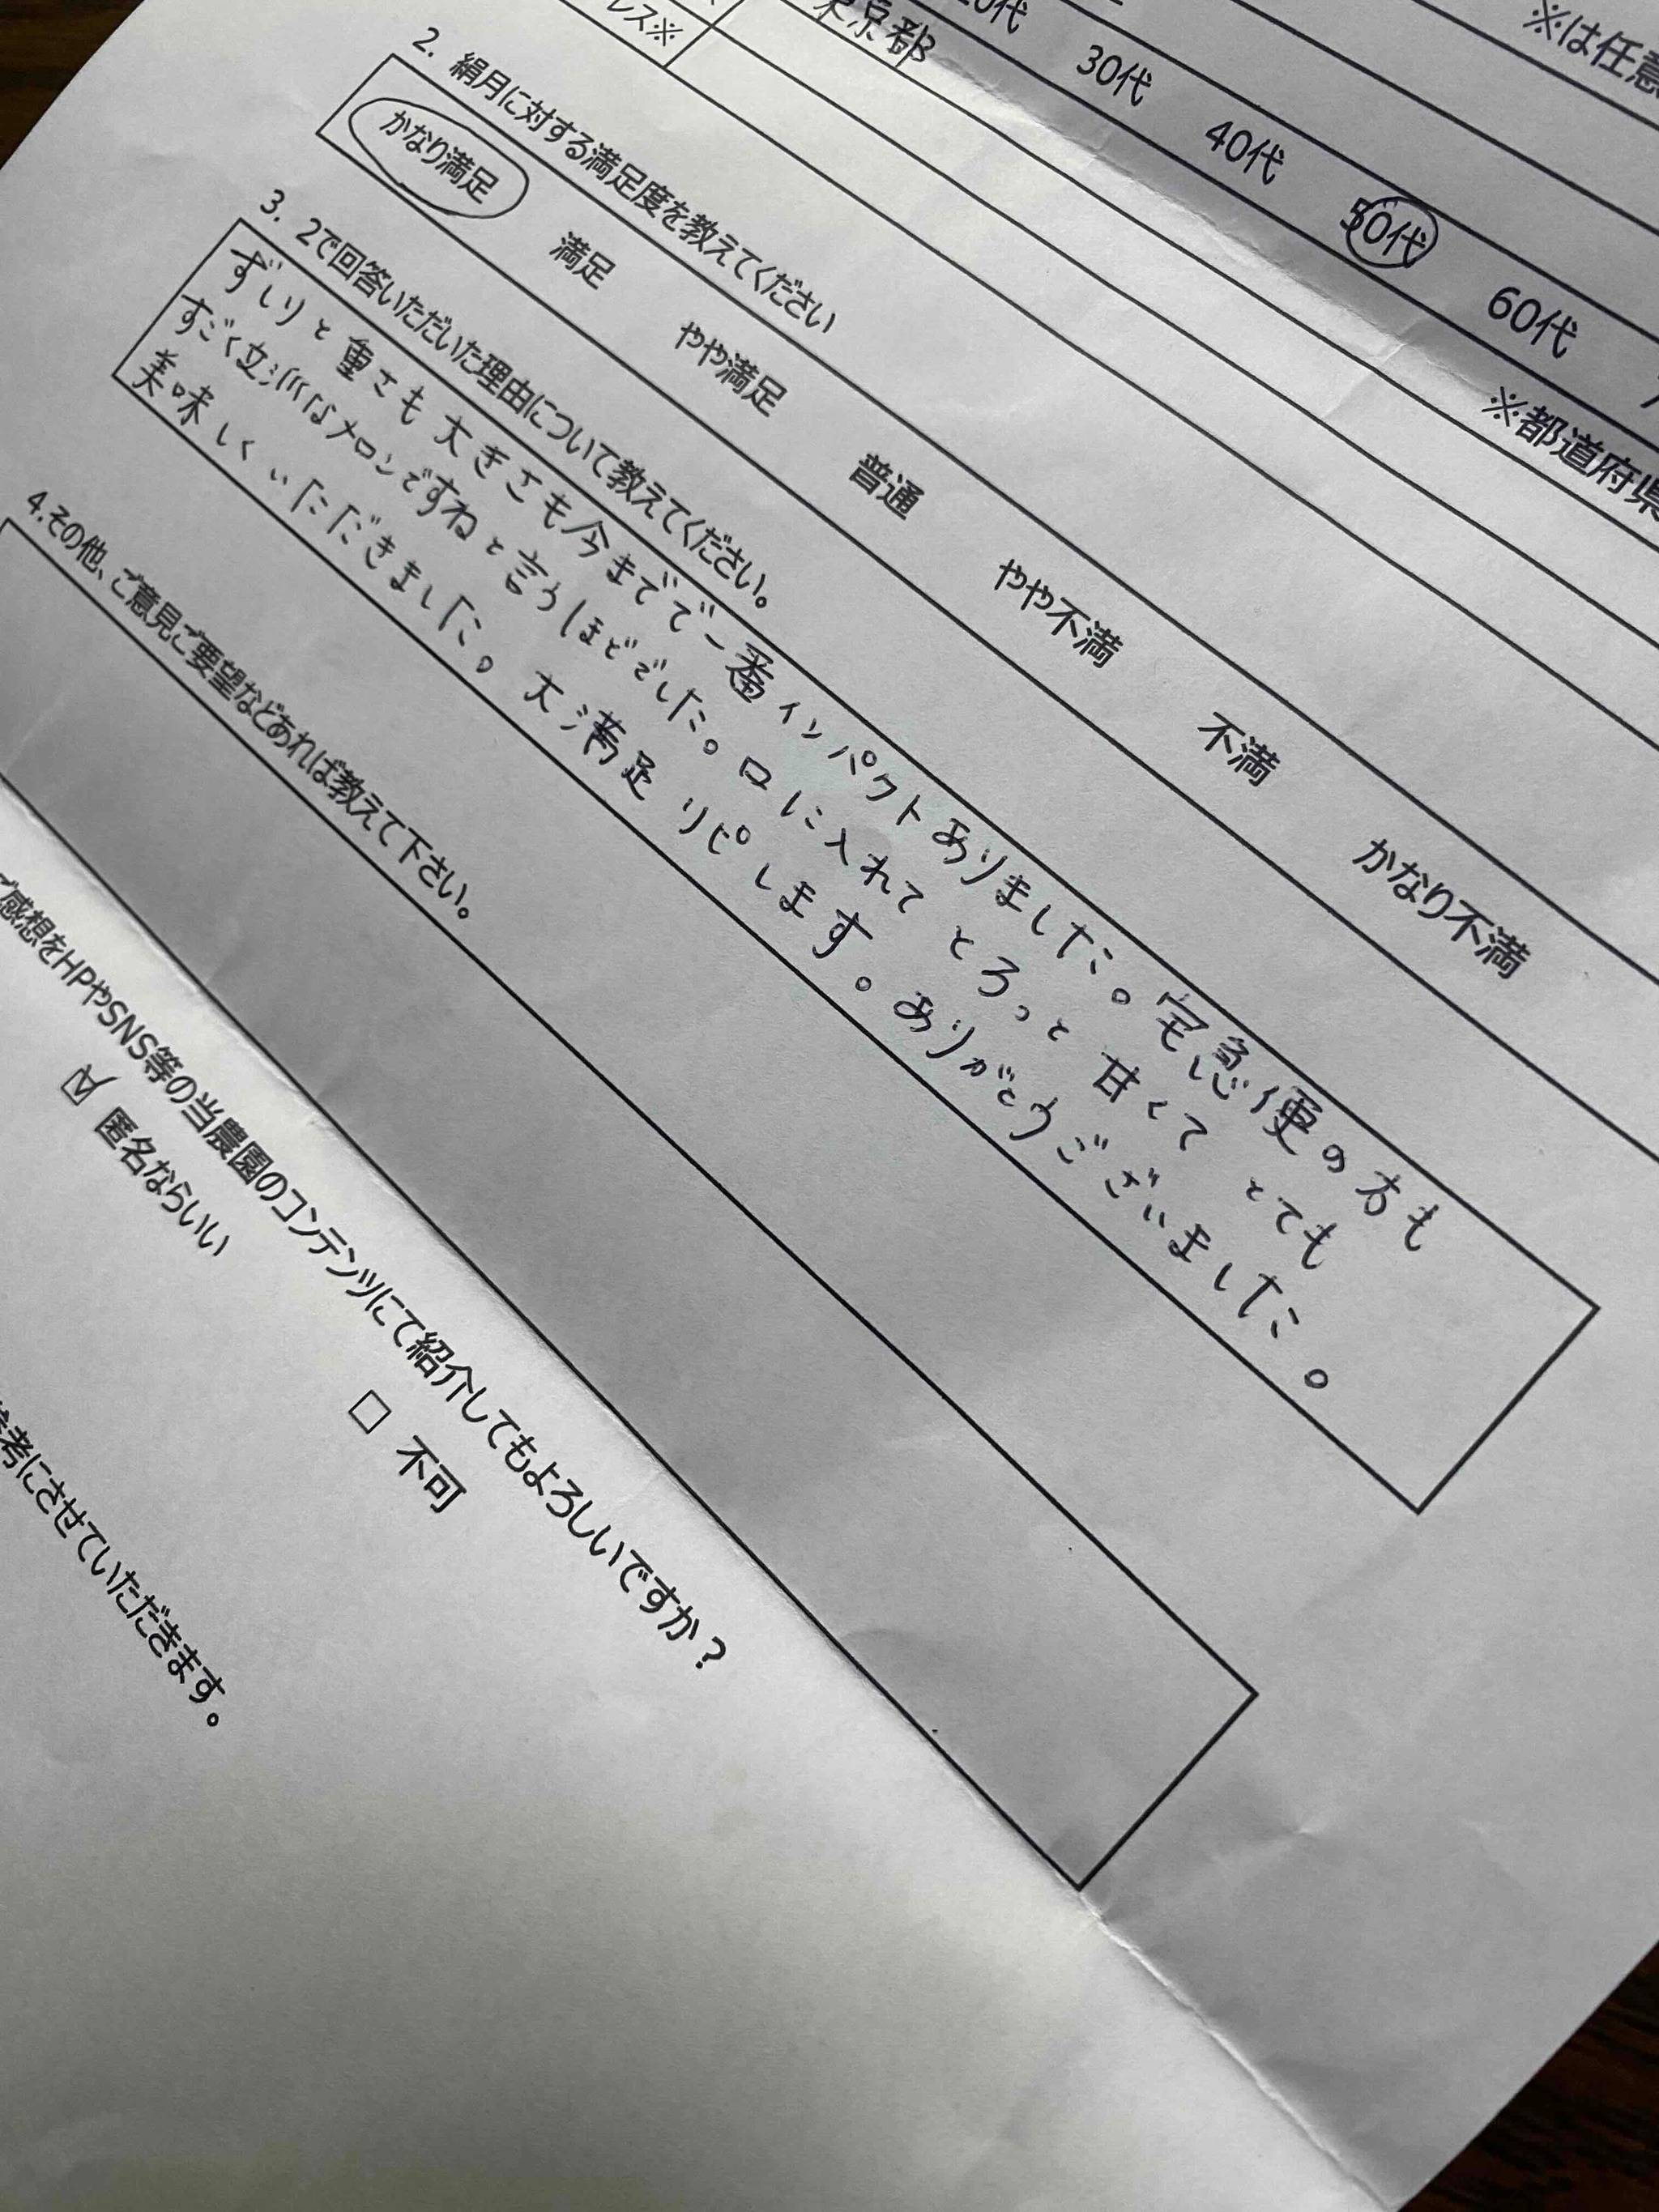 ※は任意
20代 30代 40代 50代 60代
東京都
※都道府県
レス※
2. 絹月に対する満足度を教えてください
かなり満足 満足 やや満足 普通 やや不満 不満 かなり不満
3. 2で回答いただいた理由について教えてください。
ずしりと重さも大きさも今までで一番インパクトありました。宅急便の方も
すごく立派なメロンですねと言うほどでした。口に入れてとろっと甘くてとても
美味しくいただきました。大満足リピします。ありがとうございました。
4.その他、ご意見ご要望などあれば教えて下さい。
ご感想をHPやSNS等の当農園のコンテンツにて紹介してもよろしいですか？
匿名ならいい 不可
参考にさせていただきます。